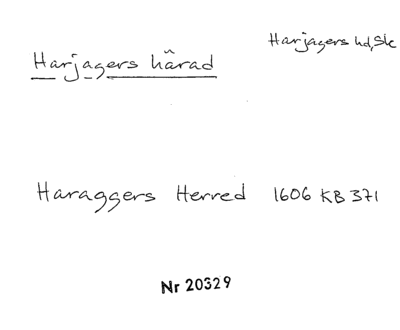 Harjagers hd, Sk
Harjagers härad
Haraggers Herred 1606 KB 371
Nr 20329